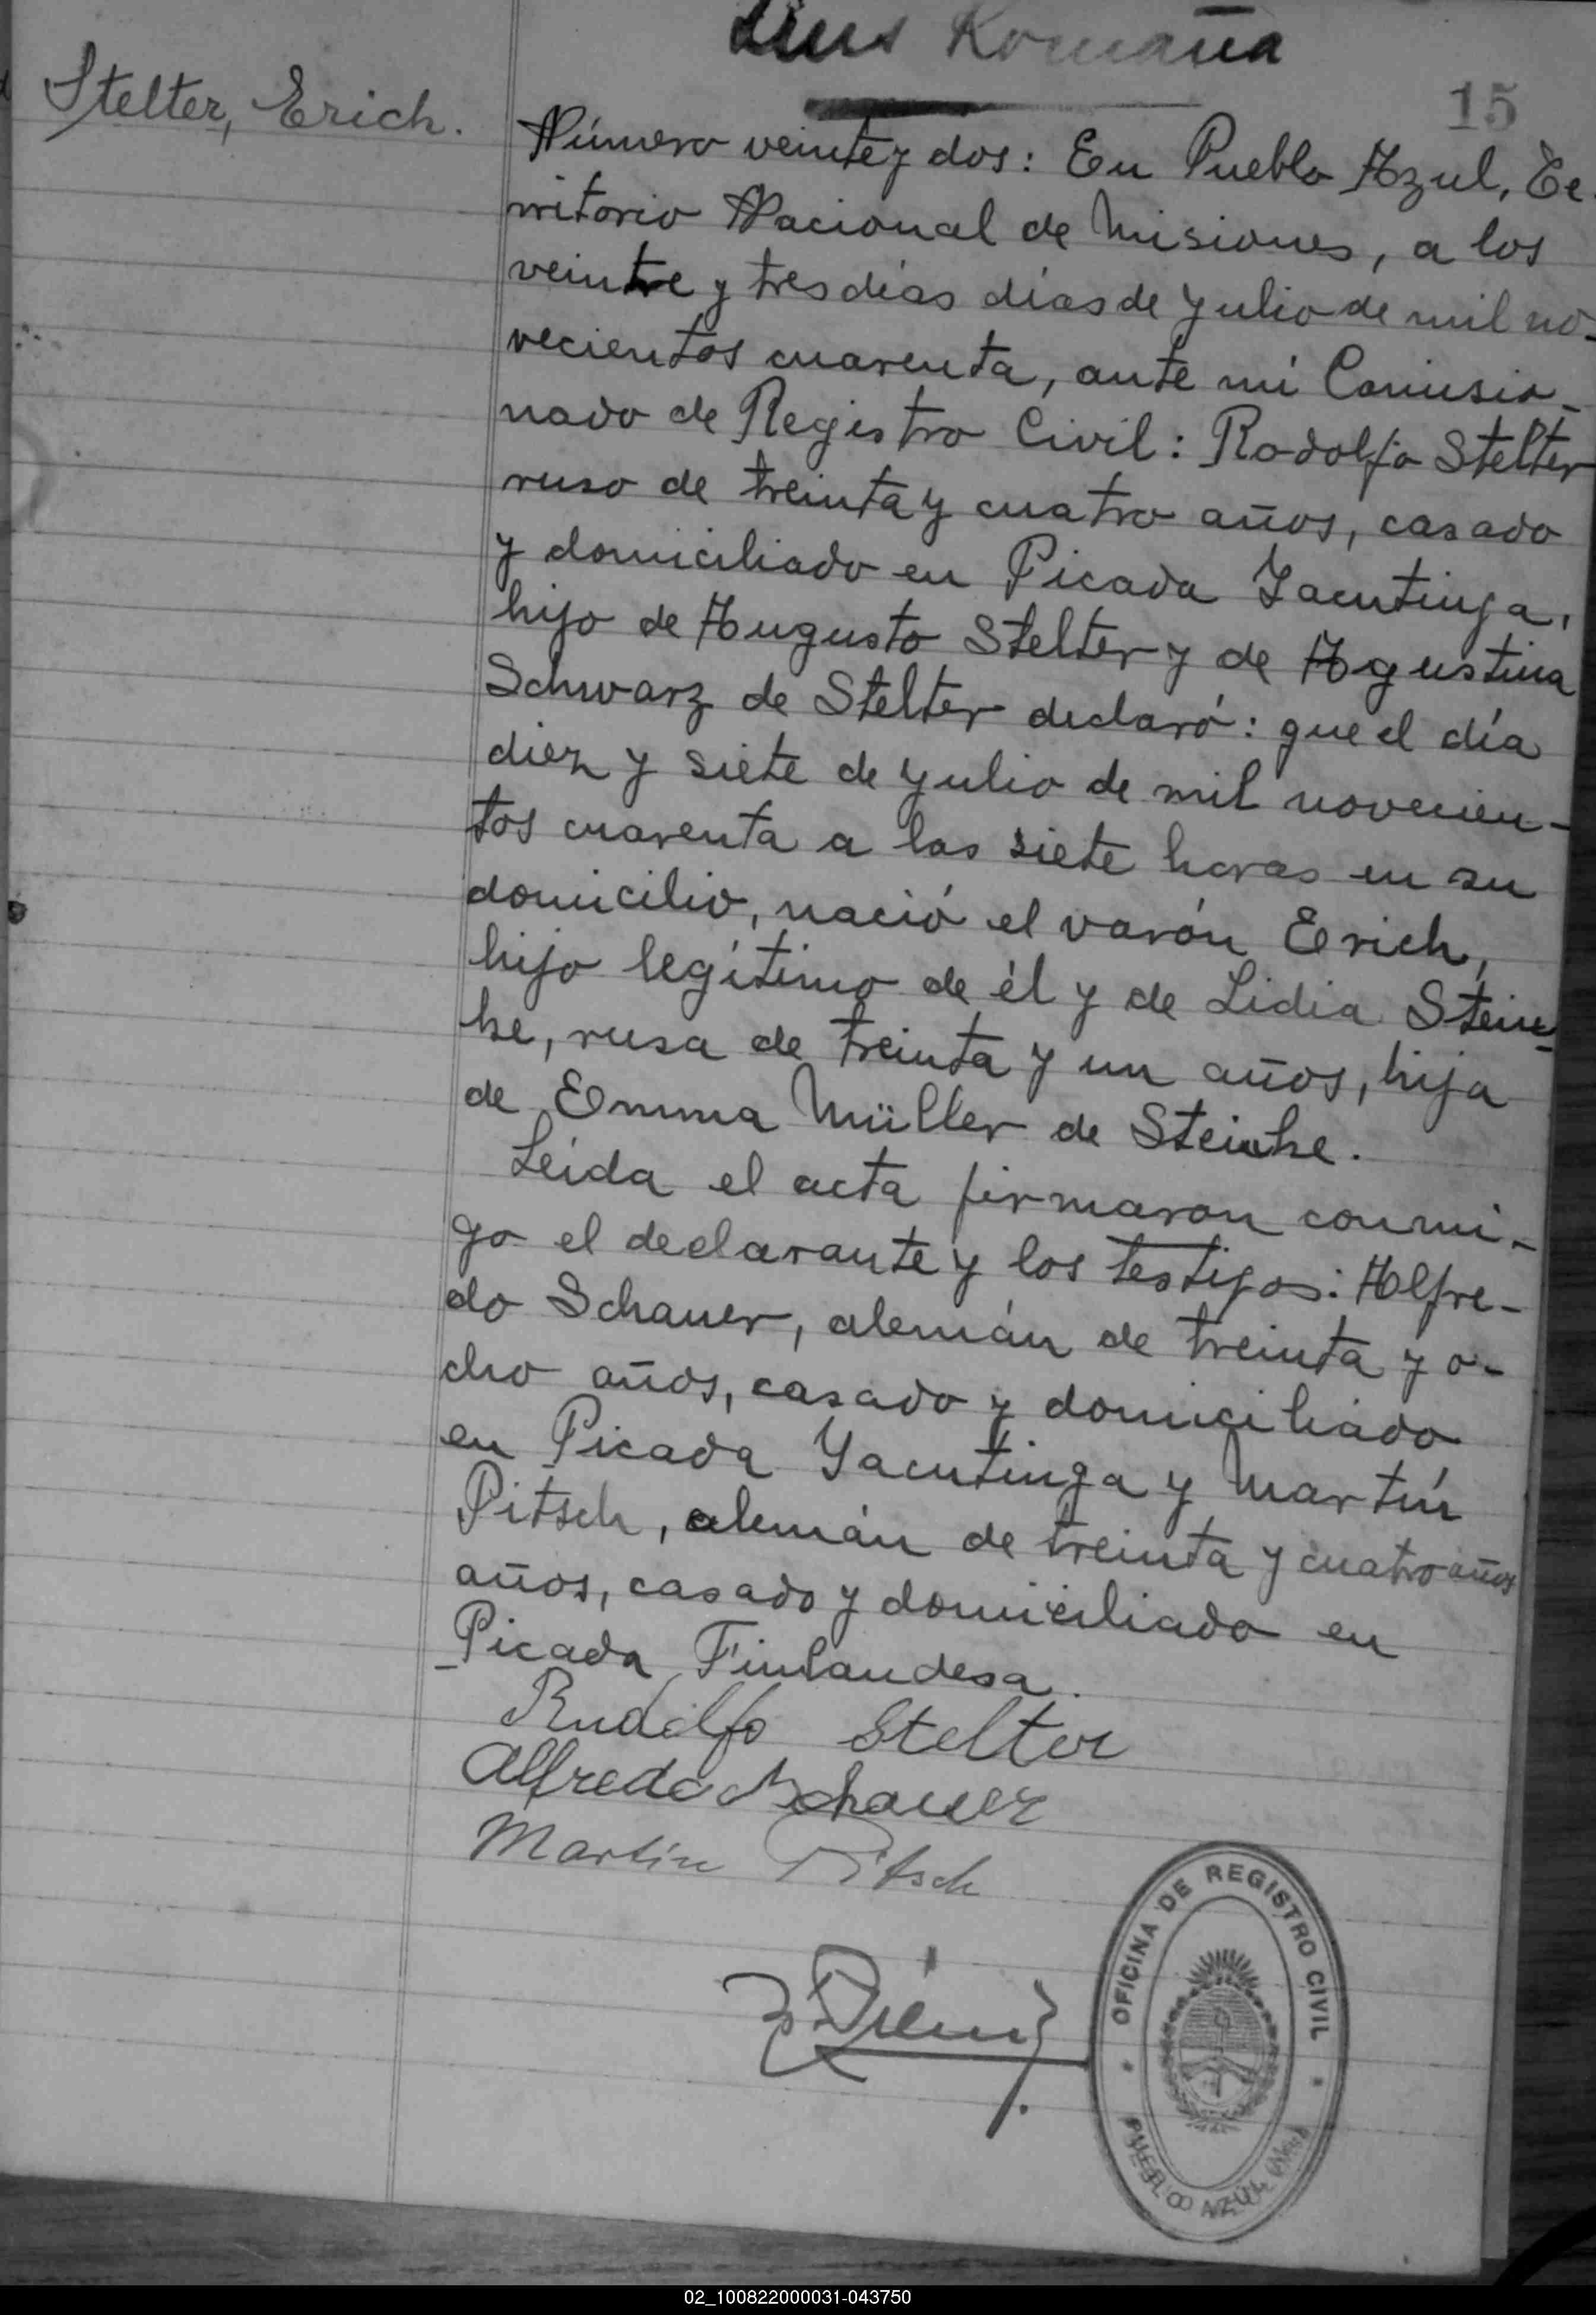 Luis Romaña
15
Stelter, Erich.
Número veinte y dos: En Pueblo Azul, Te-
rritorio Nacional de Misiones, a los
veinte y tres días días de Julio de mil no-
vecientos cuarenta, ante mí Comisio-
nado de Registro Civil: Rodolfo Stelter
ruso de treinta y cuatro años, casado
y domiciliado en Picada Yacutinga,
hijo de Augusto Stelter y de Agustina
Schwarz de Stelter declaró: que el día
diez y siete de Julio de mil novecien-
tos cuarenta a las siete horas en su
domicilio, nació el varón Erich,
hijo legítimo de él y de Lidia Stein-
ke, rusa de treinta y un años, hija
de Emma Müller de Steinke.
Leida el acta firmaron conmi-
go el declarante y los testigos: Alfre-
do Schauer, alemán de treinta y o-
cho años, casado y domiciliado
en Picada Yacutinga y Martín
Pitsch, alemán de treinta y cuatro años
años, casado y domiciliado en
Picada Finlandesa.
Rudolfo Stelter
Alfredo Schauer
Martin Pitsch
OFICINA DE REGISTRO CIVIL
PUEBLO AZUL
02_100822000031-043750